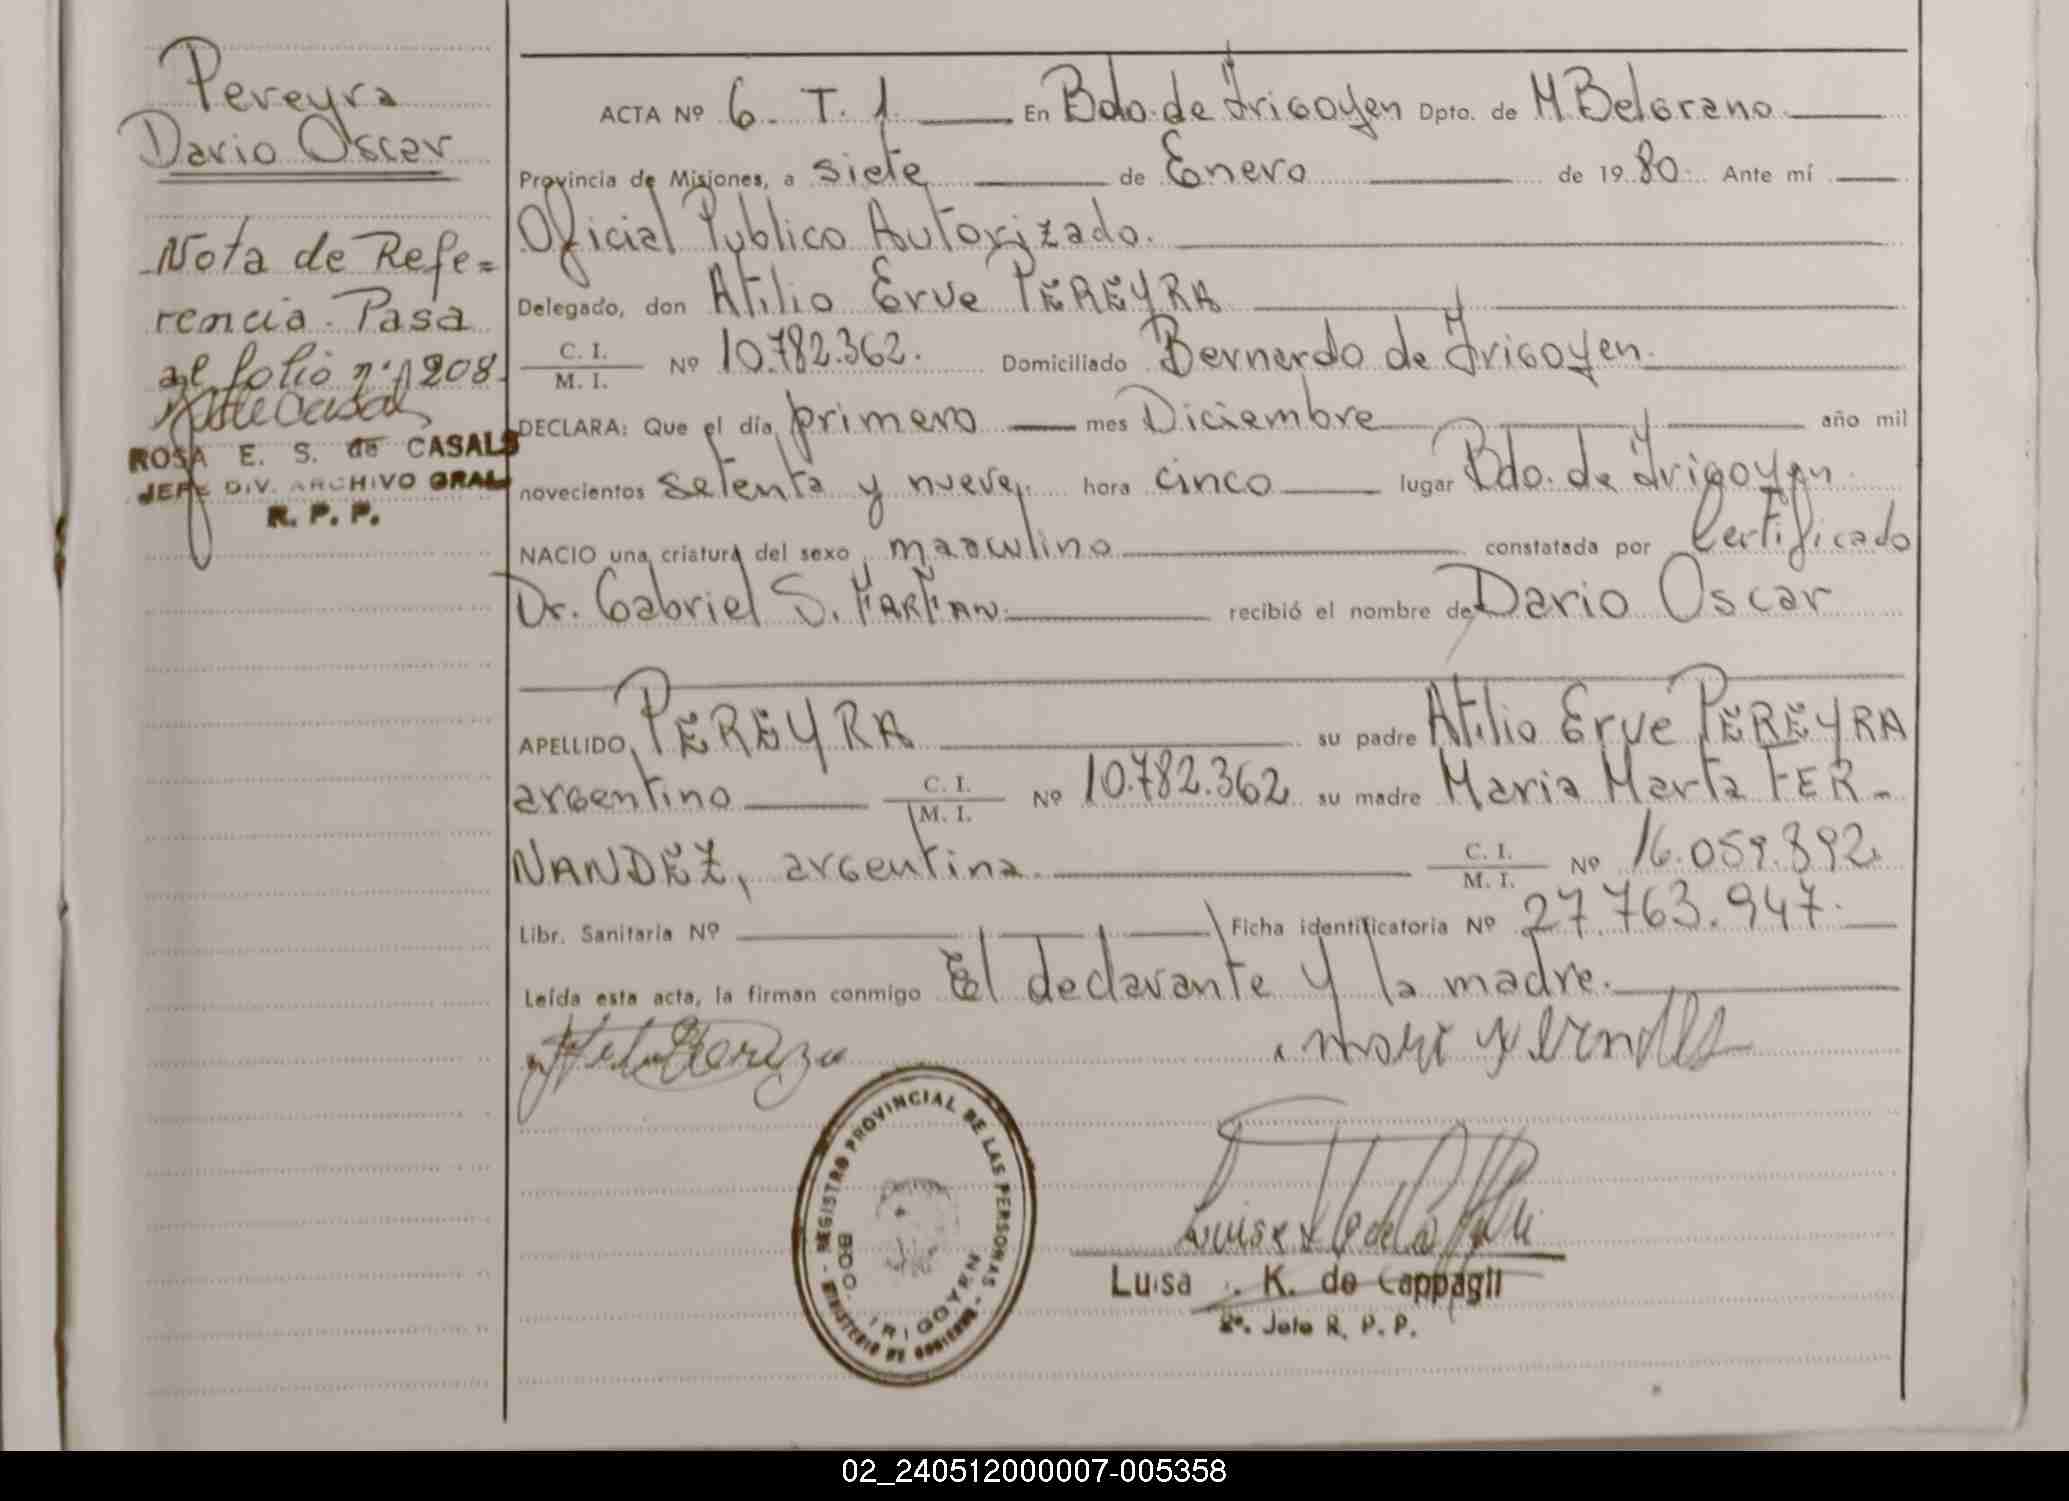 Pereyra
Dario Oscar
Nota de Refe=
rencia. Pasa
al folio nº 208
ROSA E. S. de CASALS
JEFE DIV. ARCHIVO GRAL
R. P. P.
ACTA Nº 6. T. 1. En Bdo. de Irigoyen Dpto. de M. Belgrano
Provincia de Misiones, a siete de Enero de 19 80. Ante mí
Oficial Publico Autorizado.
Delegado, don Atilio Erve PEREYRA
C. I. / M. I. Nº 10.782.362. Domiciliado Bernardo de Irigoyen.
DECLARA: Que el día primero mes Diciembre año mil
novecientos setenta y nueve, hora cinco lugar Bdo. de Irigoyen.
NACIO una criatura del sexo masculino constatada por Certificado
Dr. Gabriel S. FARFAN. recibió el nombre de Dario Oscar
APELLIDO PEREYRA su padre Atilio Erve PEREYRA
argentino C. I. / M. I. Nº 10.782.362 su madre Maria Marta FER-
NANDEZ, argentina. C. I. / M. I. Nº 16.059.892.
Libr. Sanitaria Nº Ficha identificatoria Nº 27.763.947.
Leída esta acta, la firman conmigo El declarante y la madre.
REGISTRO PROVINCIAL DE LAS PERSONAS - MINISTERIO DE GOBIERNO -
BDO. IRIGOYEN
Luisa K. de Cappagli
2º. Jefe R. P. P.
02_240512000007-005358